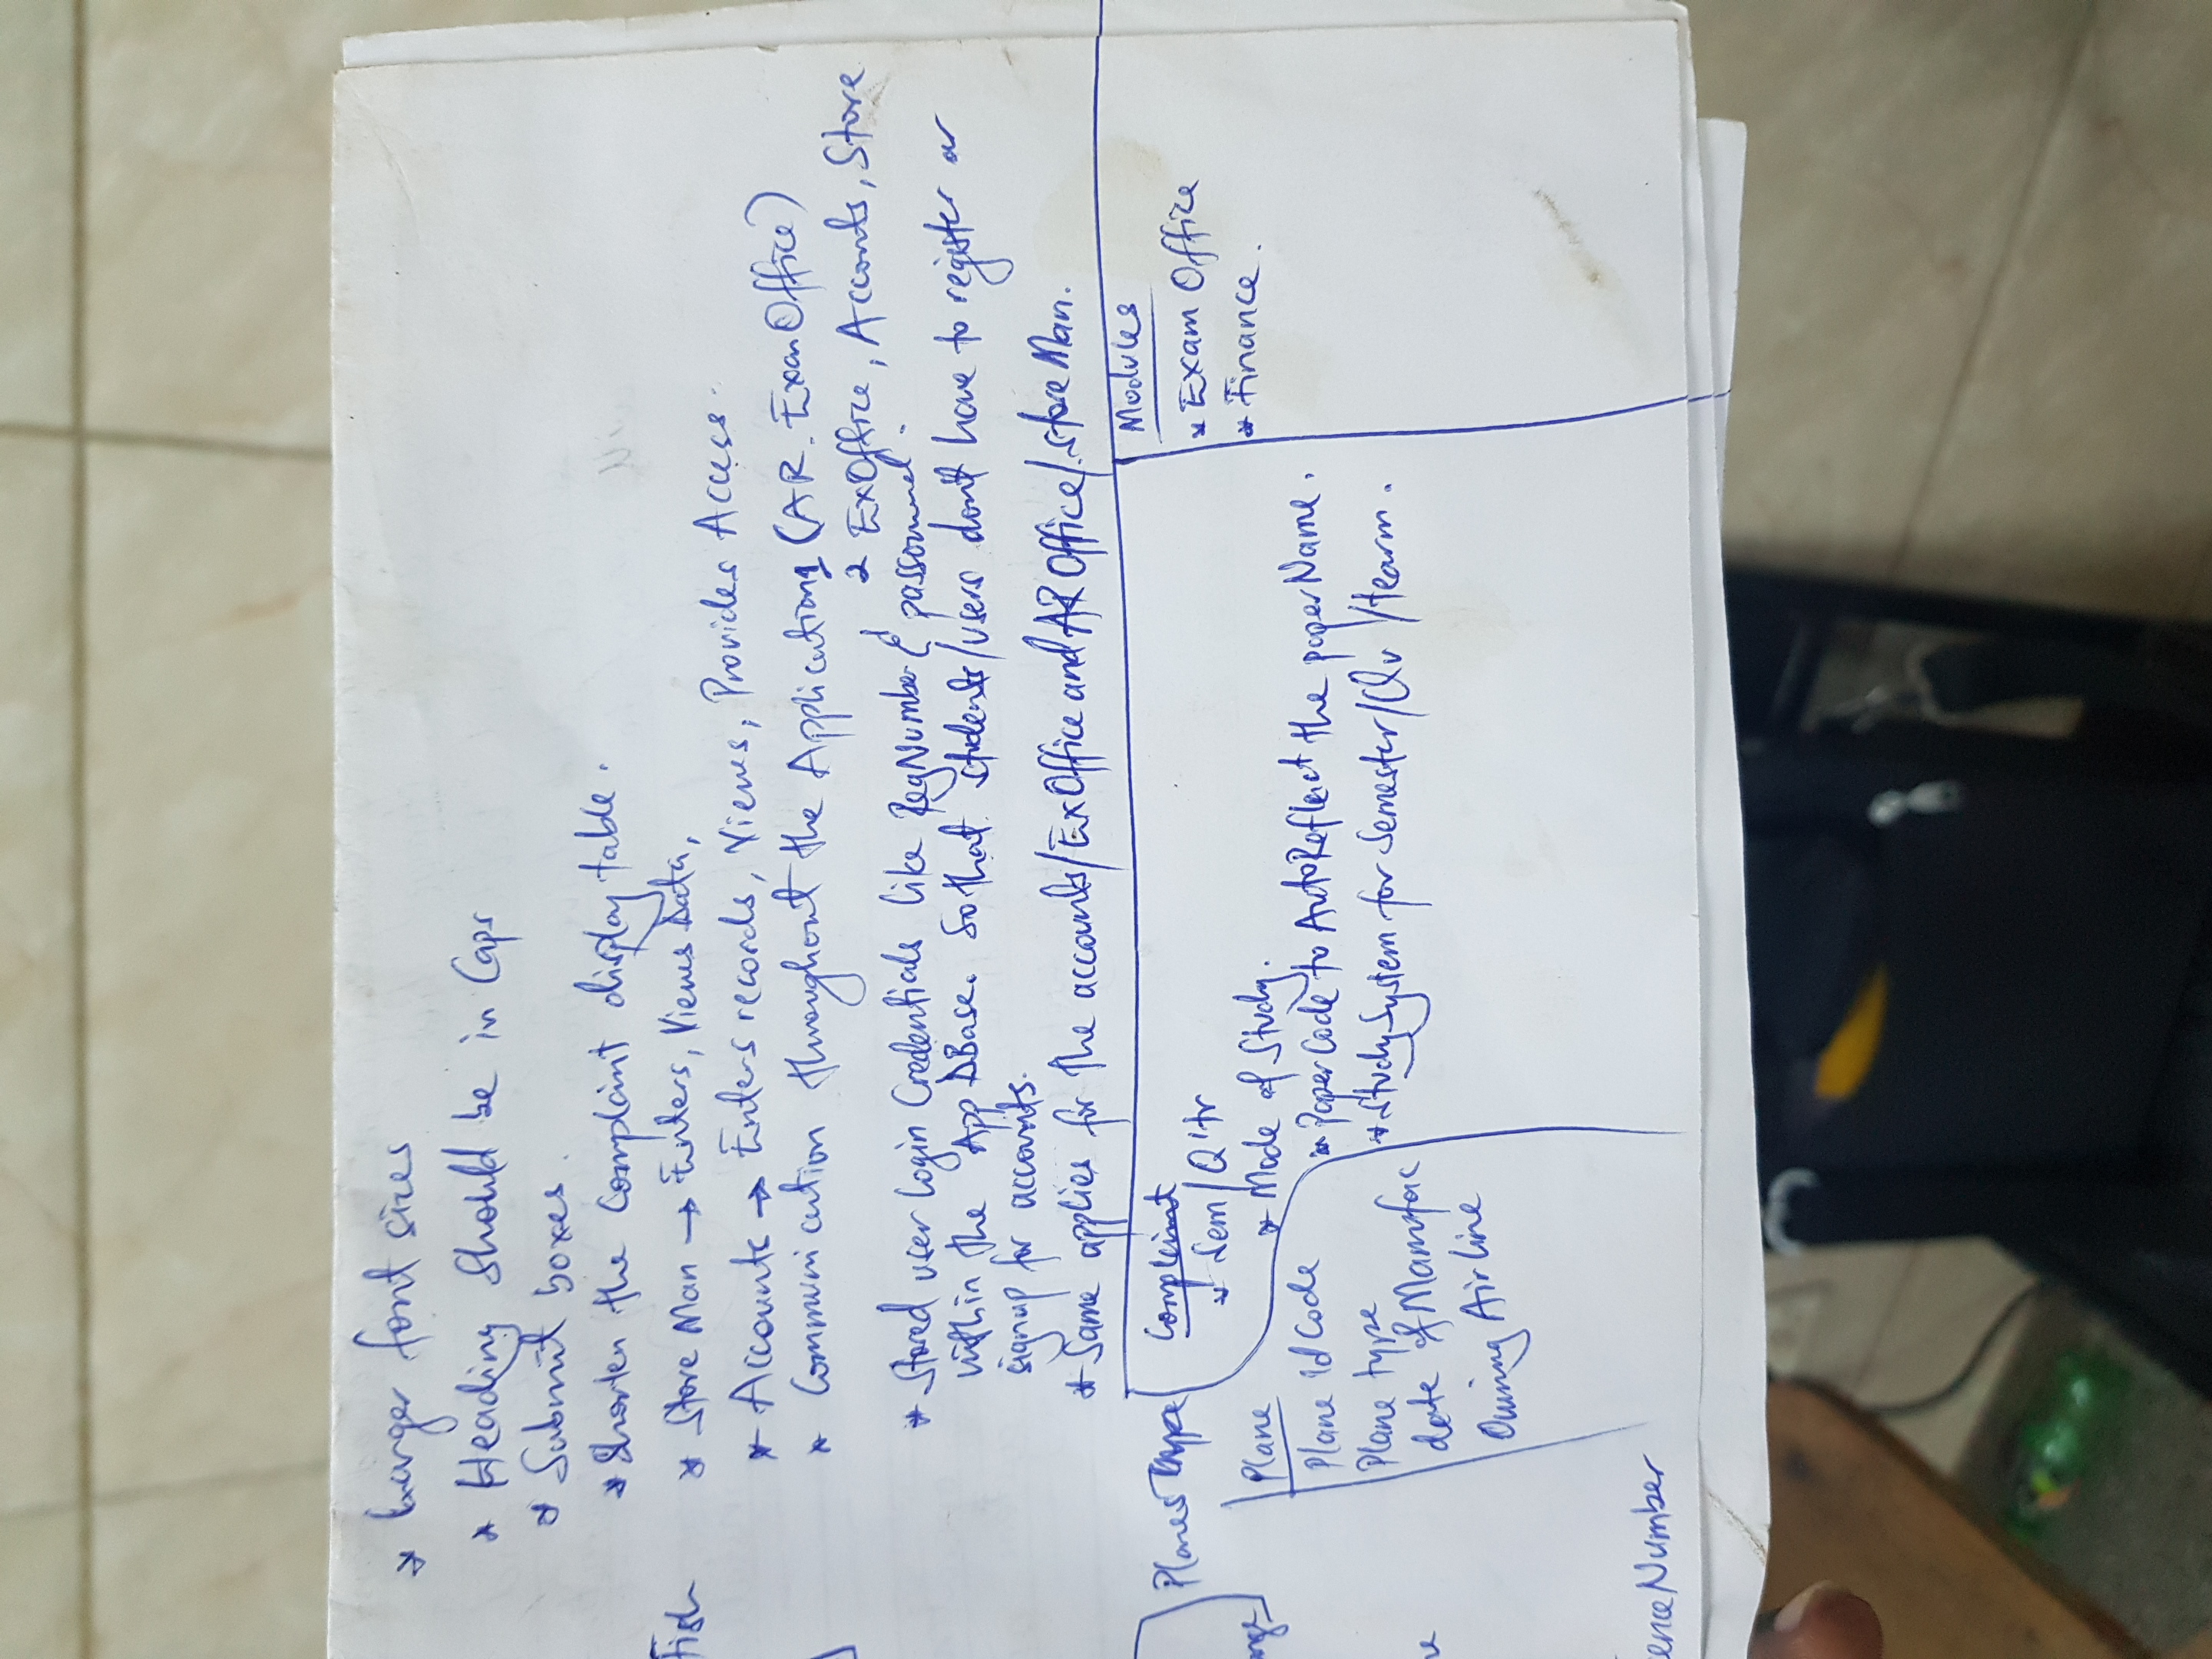 * Larger font sizes
* Heading Should be in Caps
* Submit boxes.
* Shorten the Complaint display table.
Fish
* Store Man → Enters, Views Data,
* Accounts → Enters records, Views, Provides Access.
* Communication throughout the Application 1 (AR. Exam Office)
2 ExOffice, Acconts, Store
* Stored user Login Credentials like RegNumber &
within the App DBase. So that students/users dont have to register or
signup for accounts.
* Same applies for the accounts/ExOffice and AR Office/.store Man.
Planes Type
Plane
Plane id Code
Plane type
date of Manufac
Owning Airline
enceNumber
Complaint
* Sem/Q'tr
* Mode of Study.
* PaperCode to AutoReflect the paperName.
* Study System for Semester/Qu /tearm.
Modules
* Exam Office
* Finance.